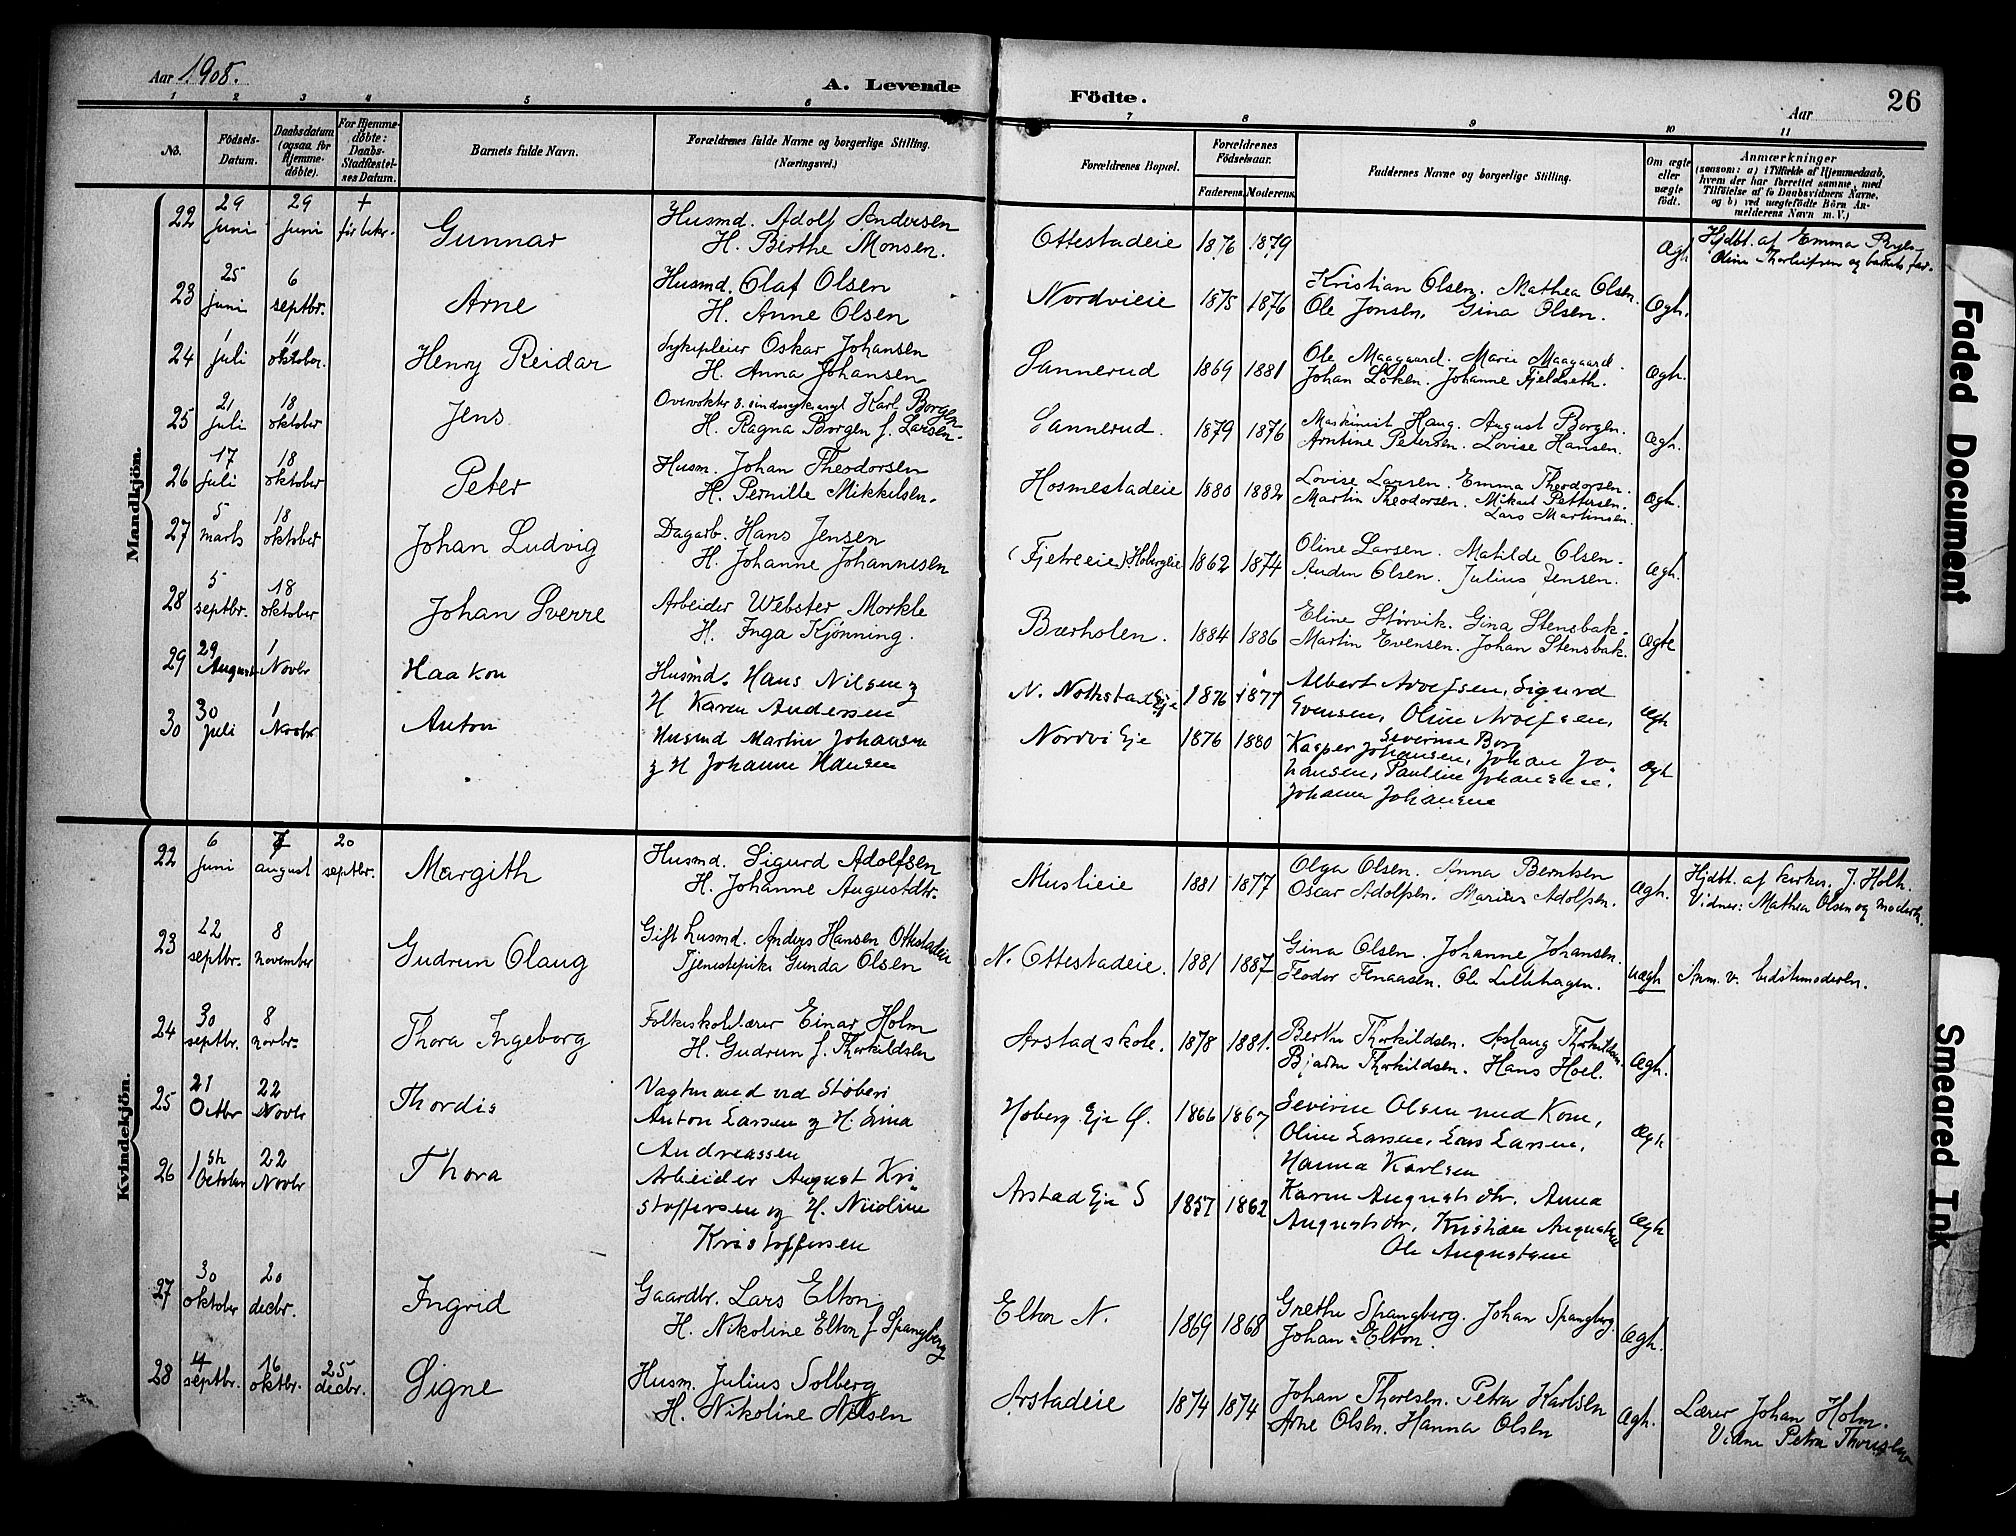 Aar 1908.
A. Levende
Födte.
Aar
26
1 2 3 4 5 6 7 8 9 10 11
No.
Födsels-Datum.
Daabsdatum (ogsaa for Hjemme-döbte).
For Hjemme-döbte: Daabs-Stadfæstel-ses Datum.
Barnets fulde Navn.
Forældrenes fulde Navne og borgerlige Stilling. (Næringsvei.)
Forældrenes Bopæl.
Forældrenes Födselsaar.
Faderens. Moderens.
Faddernes Navne og borgerlige Stilling.
Om ægte eller uægte födt.
Anmærkninger
(saasom: a) i Tilfælde af Hjemmedaab, hvem der har forrettet samme, med Tilföielse af to Daabsvidners Navne, og b) ved uægtefödte Börn An-melderens Navn m. V.)
Mandkjön.
22 29 juni 29 juni + før bekr. Gunnar Husmd. Adolf Andersen Ottestadeie 1876 1879 Ægh. Hjdbt. af Emma
H. Birthe Monsen. Oline Thorleifsen og barnets far.
23 25 juni 6 septbr. Arne Husmd. Olaf Olsen Nordvieie 1875 1876 Kristian Olsen. Mathea Olsen. Ægh.
H. Anne Olsen Ole Jonsen, Gina Olsen.
24 1 juli 11 oktober. Henry Reidar Sykepleier Oskar Johansen Sannerud 1869 1881 Ole Maagaard. Marie Maagaard. Ægh.
H. Anna Johansen Johan Løken. Johanne Fjeldseth.
25 21 juli 18 oktober Jens Overvokter v. sindssykeasyl Karl Borgen Sannerud. 1879 1876 Maskinist Haug. August Borgen. Ægh.
H. Ragna Borgen f. Larsen. Arntine Petersen. Lovise Hansen.
26 17 juli 18 oktober Peter Husm. Johan Theodorsen Hosmestadeie 1880 1882 Lovise Larsen. Emma Theodorsen. Ægh.
H. Pernille Mikkelsen. Martin Theodorsen. Mikael Pettersen.
Lars Martinsen.
27 5 marts 18 oktober Johan Ludvig Dagarb. Hans Jensen (Fjetreeie) Hobergeie 1862 1874 Oline Larsen. Matilde Olsen. Ægh.
H. Johanne Johannesen Auden Olsen. Julius Jensen.
28 5 septbr. 18 oktober Johan Sverre Arbeider Webster Morkle Bærholen. 1884 1886 Eline Størvik. Gina Stensbak. Ægte
H. Inga Kjønning. Martin Evensen. Johan Stensbak.
29 29 August 1 Novbr Haakon Husmd. Hans Nilsen og N. Nothstad Eje 1876 1877 Albert Adolfsen, Sigurd Ægh
H Karen Andersen Evensen, Oline Adolfsen,
Severine Borg
30 30 Juli 1 Novbr Anton Husmd Martin Johansen Nordvi Eje 1876 1880 Kasper Johansen, Johan Jo- Ægh
og H Johanne Hansen hansen, Pauline Johansen,
Johanne Johansen
Kvindekjön.
22 6 juni 7 august 20 septbr. Margith Husmd. Sigurd Adolfsen Muslieie 1881 1877 Olga Olsen. Anna Berntsen Ægh. Hjdbt. af kirkes. J. Holth.
H. Johanne Augustdtr. Oscar Adolfsen. Marius Adolfsen. Vidner: Mathea Olsen og moderen.
23 22 septbr. 8 november Gudrun Olaug Gift husmd. Anders Hansen Ottestadeie N. Ottestadeie. 1881 1887 Gina Olsen. Johanne Johansen. uægh Anm. v. bedstemoderen.
Tjenestepike Gunda Olsen Teodor Finaasen. Ole Lillehagen.
24 30 septbr. 8 novbr. Thora Ingeborg Folkeskolelærer Einar Holm Arstad skole. 1878 1881. Berthe Thorkildsen. Aslaug Thorkildsen. Ægh.
H. Gudrun f. Thorkildsen Bjarne Thorkildsen. Hans Hoel.
25 21 Octbr 22 Novbr Thordis Vagtmand ved Støberi Hoberg Eje Ø. 1866 1867 Severin Olsen med Kone, Ægh
Anton Larsen og H. Lina Oline Larsen, Lars Larsen,
Andreassen Hanna Karlsen
26 1ste October 22 Novbr Thora Arbeider August Kri- Arstad Eje S 1857 1862 Karen Augustsdtr. Anna Ægh
stoffersen og H. Nicoline Augustsdtr, Kristian Augustsen
Kristoffersen Ole Augustsen
27 30 oktober 20 decbr. Ingrid Gaardbr. Lars Elton Elton N. 1869 1868 Grethe Spangberg. Johan Spangberg. Ægh.
H. Nikoline Elton f. Spangberg Johan Elton.
28 4 septbr. 16 oktbr. 25 decbr. Signe Husm. Julius Solberg Arstadeie 1874 1874 Johan Thoresen. Petra Karlsen Ægh. Lærer Johan Holm.
H. Nikoline Nilsen Arne Olsen. Hanna Olsen Vidne Petra
Faded Document
Smeared Ink